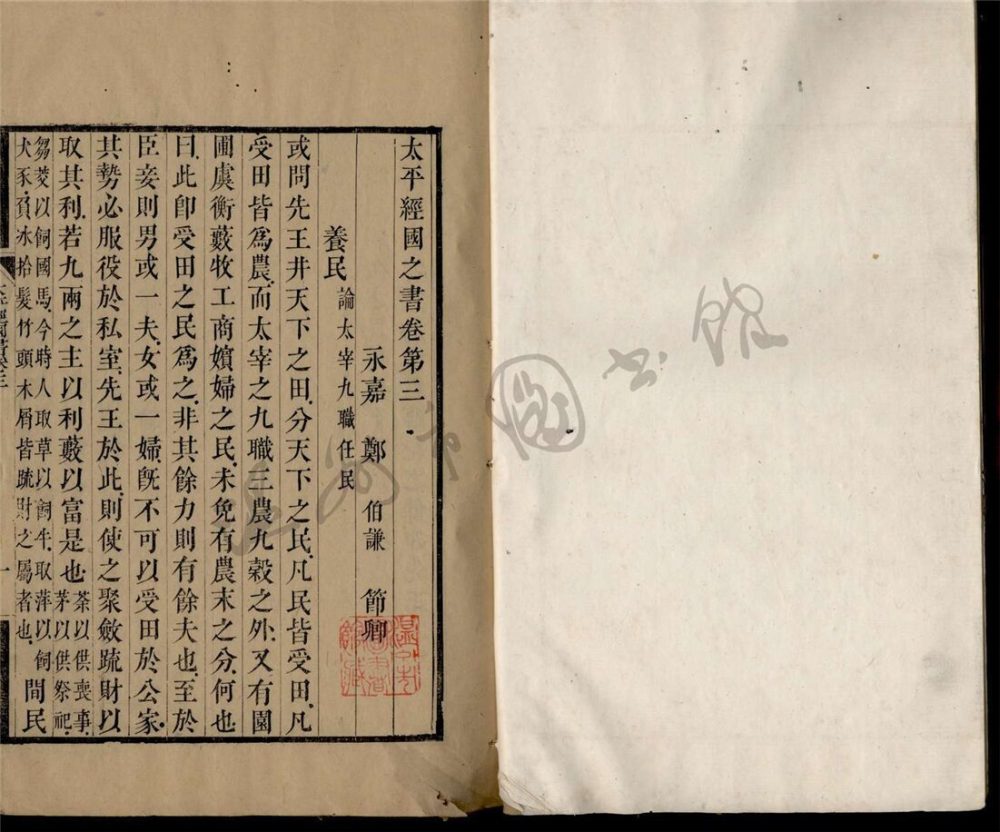 太平經國之書卷第三
永嘉 鄭 伯謙 節卿
養民 論太宰九職任民
或問先王井天下之田、分天下之民、凡民皆受田、凡
受田皆爲農、而太宰之九職三農九穀之外、又有園
圃虞衡藪牧工商嬪婦之民、未免有農末之分、何也
曰、此卽受田之民爲之、非其餘力則有餘夫也、至於
臣妾則男或一夫、女或一婦、旣不可以受田於公家、
其勢必服役於私室、先王於此、則使之聚斂疏財以
取其利、若九兩之主以利藪以富是也、荼以供喪事、茅以供祭祀、
芻茭以飼國馬、今時人取草以飼牛、取萍以飼
犬豕、負冰拾髮竹頭木屑皆疏財之屬者也、閒民
太平經國書卷三
一
溫州市圖書館藏
溫州市圖書館